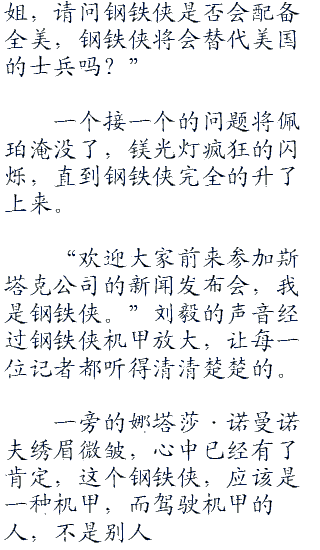 姐，请问钢铁侠是否会配备
全美，钢铁侠将会替代美国
的士兵吗？”
一个接一个的问题将佩
珀淹没了，镁光灯疯狂的闪
烁，直到钢铁侠完全的升了
上来。
“欢迎大家前来参加斯
塔克公司的新闻发布会，我
是钢铁侠。”刘毅的声音经
过钢铁侠机甲放大，让每一
位记者都听得清清楚楚的。
一旁的娜塔莎·诺曼诺
夫绣眉微皱，心中已经有了
肯定，这个钢铁侠，应该是
一种机甲，而驾驶机甲的
人，不是别人